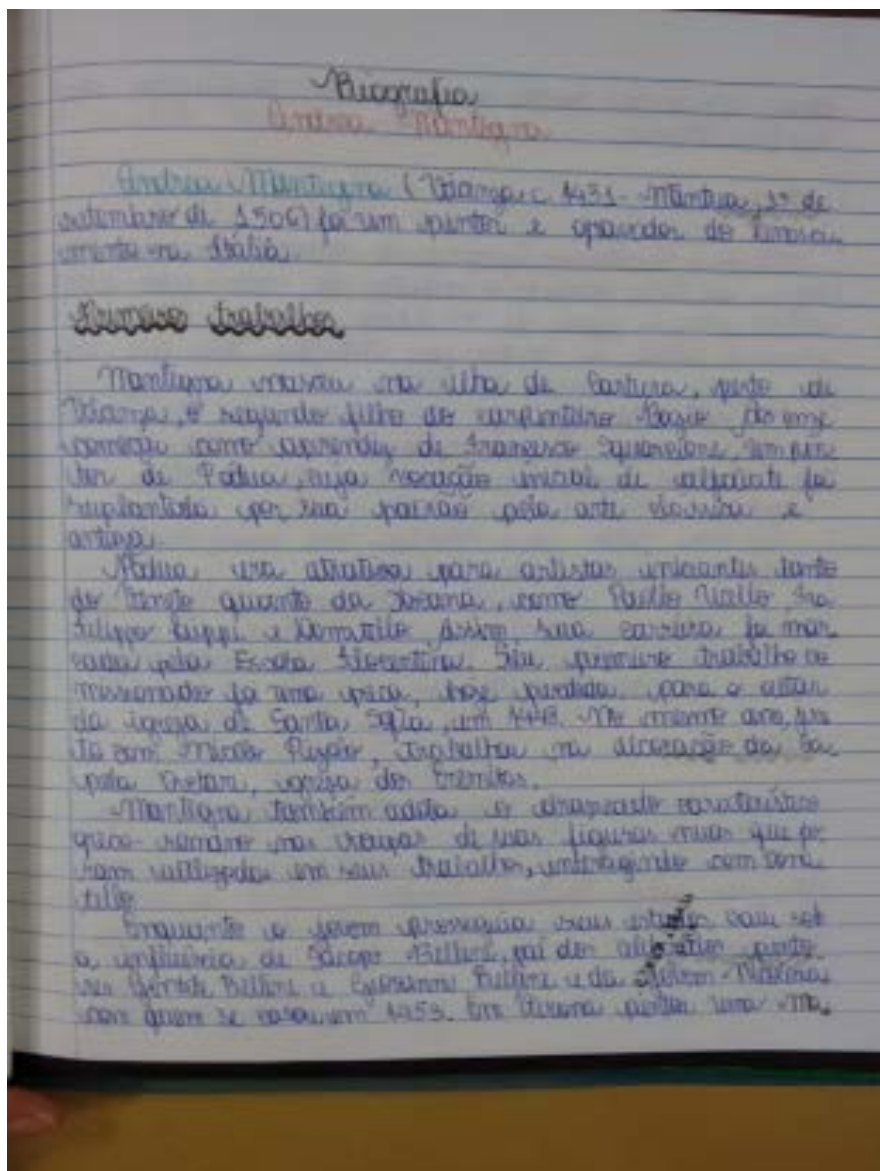 Biografia
Andrea Mantegna
Andrea Mantegna (Vicenza c. 1431 - Mântua, 13 de
setembro de 1506) foi um pintor e gravador do renasci
mento na Itália.
Primeiro trabalhos
Mantegna nasceu na ilha de Cartura, perto de
Vicenza, o segundo filho do carpinteiro Biagio. Aos onze
começou como aprendiz de Francesco Squarcione, um pin
tor de Pádua, cuja vocação inicial de alfaiate foi
suplantada por sua paixão pela arte clássica e
antiga.
Pádua era atrativa para artistas iniciantes tanto
do Vêneto quanto da Toscana, como Paolo Uccello, Fra
Filippo Lippi e Donatello. Assim, sua carreira foi mar
cada pela Escola Florentina. Seu primeiro trabalho co
missionado foi uma peça, hoje perdida, para o altar
da igreja de Santa Sofia, em 1448. No mesmo ano, jun
to com Nicolò Pizolo, trabalhou na decoração da Ca
pela Ovetari, igreja dos Eremitas.
Mantegna também adota o drapeado característico
greco-romano nas roupas de suas figuras que
em seus trabalhos, com Dona
tello
Enquanto o jovem prosseguia seus estudos, caiu sob
a influência de Jacopo Bellini, pai dos pinto
res Gentile Bellini e Giovanni Bellini e da jovem Nicolosia
com quem se casou em 1453. Em Verona pintou uma Ma